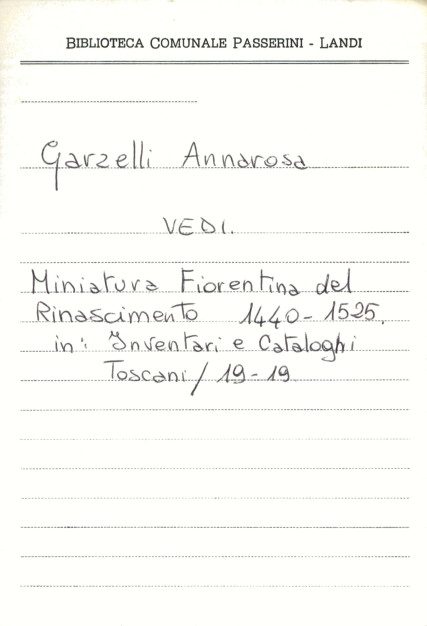 BIBLIOTECA COMUNALE PASSERINI - LANDI
Garzelli Annarosa
VEDI.
Miniatura Fiorentina del
Rinascimento 1440-1525.
in: Inventari e Cataloghi
Toscani / 19-19